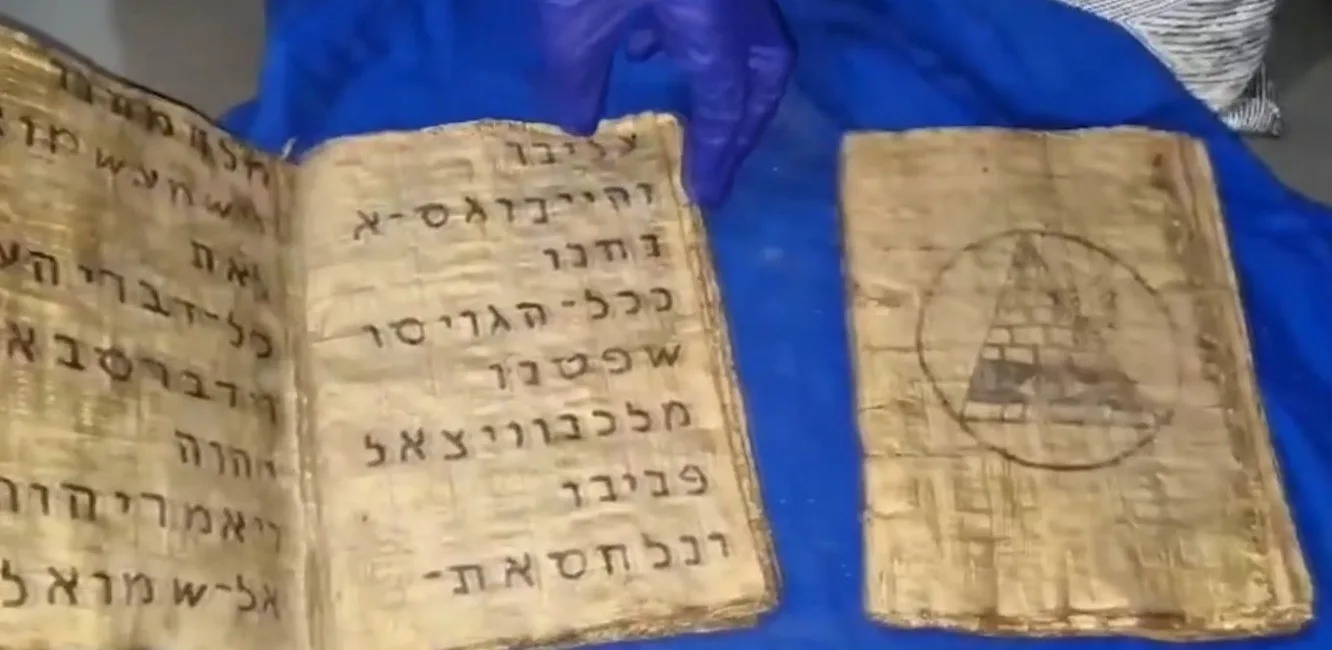 עליבו
והייבוגס-א
נחנו
ככל-הגויסו
שפטנו
מלכנוויצאל
פביבו
ונלחסאת-
את
כל-דבריהע
וידברסבא
יהוה
ויאמריהוה
אל-שמואל